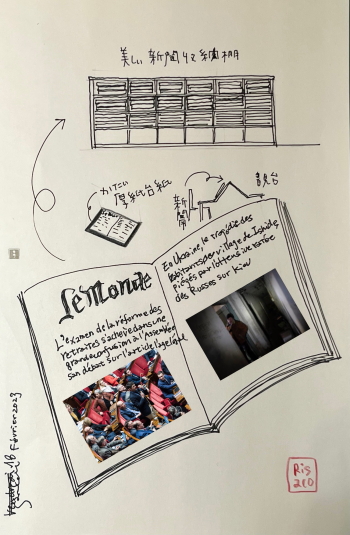 美しい新聞収納棚
かたい
厚紙台紙
新聞
説台
Le Monde
L'examen de la réforme des
retraites s'achève dans une
grande confusion à l'Assemblée
san débat sur l'article
En Ukraine, le tragédie des
habitants du village de
piégés par l'offensive
des Russes sur Kiev
16 Février 2023
Ris